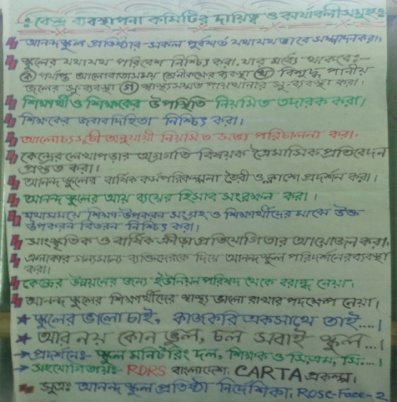 কেন্দ্র ব্যবস্থাপনা কমিটির দায়িত্ব ও কার্যাবলীসমূহঃ
আনন্দস্কুল প্রতিষ্ঠার সকল পূর্বশর্ত যথাযথভাবে সম্পাদন করা।
স্কুলের যথাযথ পরিবেশ নিশ্চিত করা, যার মধ্যে থাকবেঃ-
পর্যাপ্ত আলোবাতাসময় শ্রেনীকক্ষের ব্যবস্থা বিশুদ্ধ পানীয়
জলের সুব্যবস্থা স্বাস্থ্যসম্মত পায়খানার সুব্যবস্থা করা।
শিক্ষার্থী ও শিক্ষকের উপস্থিতি নিয়মিত তদারক করা।
শিক্ষকের জবাবদিহিতা নিশ্চিত করা।
আলোচ্যসূচী অনুযায়ী নিয়মিত সভা পরিচালনা করা।
কেন্দ্রের লেখাপড়ার অগ্রগতি বিষয়ক ত্রৈমাসিক প্রতিবেদন
প্রস্তুত করা।
আনন্দ স্কুলের বার্ষিক কর্মপরিকল্পনা তৈরী ও ক্লাশে প্রদর্শন করা।
আনন্দ স্কুলের আয় ব্যয়ের হিসাব সংরক্ষন করা।
যথাসময়ে শিক্ষা উপকরন সংগ্রহ ও শিক্ষার্থীদের মাঝে উক্ত
উপকরন বিতরন নিশ্চিত করা।
সাংস্কৃতিক ও বার্ষিক ক্রীড়া প্রতিযোগিতার আয়োজন করা।
এলাকার গন্যমান্য ব্যক্তিদেরকে দিয়ে আনন্দ স্কুল পরিদর্শনের ব্যবস্থা
করা।
কেন্দ্রের উন্নয়নের জন্য ইউনিয়ন পরিষদ থেকে বরাদ্দ নেয়া।
আনন্দ স্কুলের শিক্ষার্থীদের স্বাস্থ্য ভালো রাখার পদক্ষেপ নেয়া।
স্কুলের ভালো চাই, কাজ করি একসাথে তাই....।
আর নয় কোন ভুল, চল সবাই স্কুল...।
প্রদর্শনেঃ- স্কুল মনিটরিং দল, শিক্ষক ও সিএমসি....।
সহযোগিতায়ঃ- RDRS বাংলাদেশ, CARTA প্রকল্প।
সূত্রঃ আনন্দ স্কুল প্রতিষ্ঠা নির্দেশিকা, Rosc-Face-2